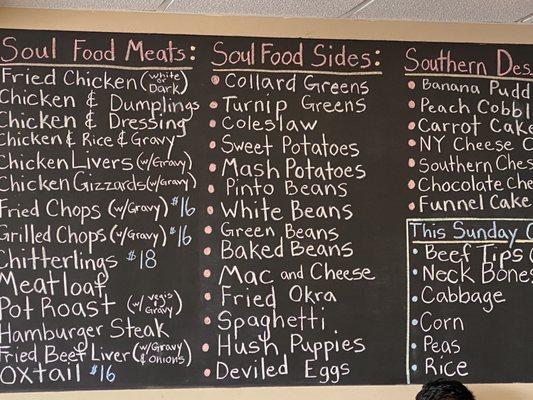 Soul Food Meats:
Fried Chicken (White or Dark)
Chicken & Dumplings
Chicken & Dressing
Chicken & Rice & Gravy
Chicken Livers (w/Gravy)
Chicken Gizzards (w/Gravy)
Fried Chops (w/Gravy) $16
Grilled Chops (w/Gravy) $16
Chitterlings $18
Meatloaf
Pot Roast (w/Vegis Gravy)
Hamburger Steak
Fried Beef Liver (w/Gravy & Onions)
Oxtail $16
Soul Food Sides:
Collard Greens
Turnip Greens
Coleslaw
Sweet Potatoes
Mash Potatoes
Pinto Beans
White Beans
Green Beans
Baked Beans
Mac and Cheese
Fried Okra
Spaghetti
Hush Puppies
Deviled Eggs
Southern Des
Banana Pudd
Peach Cobbl
Carrot Cake
NY Cheese C
Southern Ches
Chocolate Che
Funnel Cake
This Sunday
Beef Tips (
Neck Bones
Cabbage
Corn
Peas
Rice